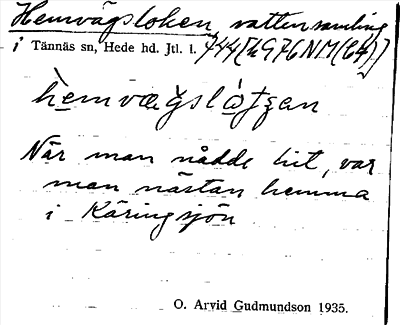 Hemvägsloken, vattensamling
i Tännäs sn, Hede hd. Jtl. l.
hemvägslå
När man nådde hit, var
man nästan hemma
i Käringsjön
O. Arvid Gudmundson 1935.